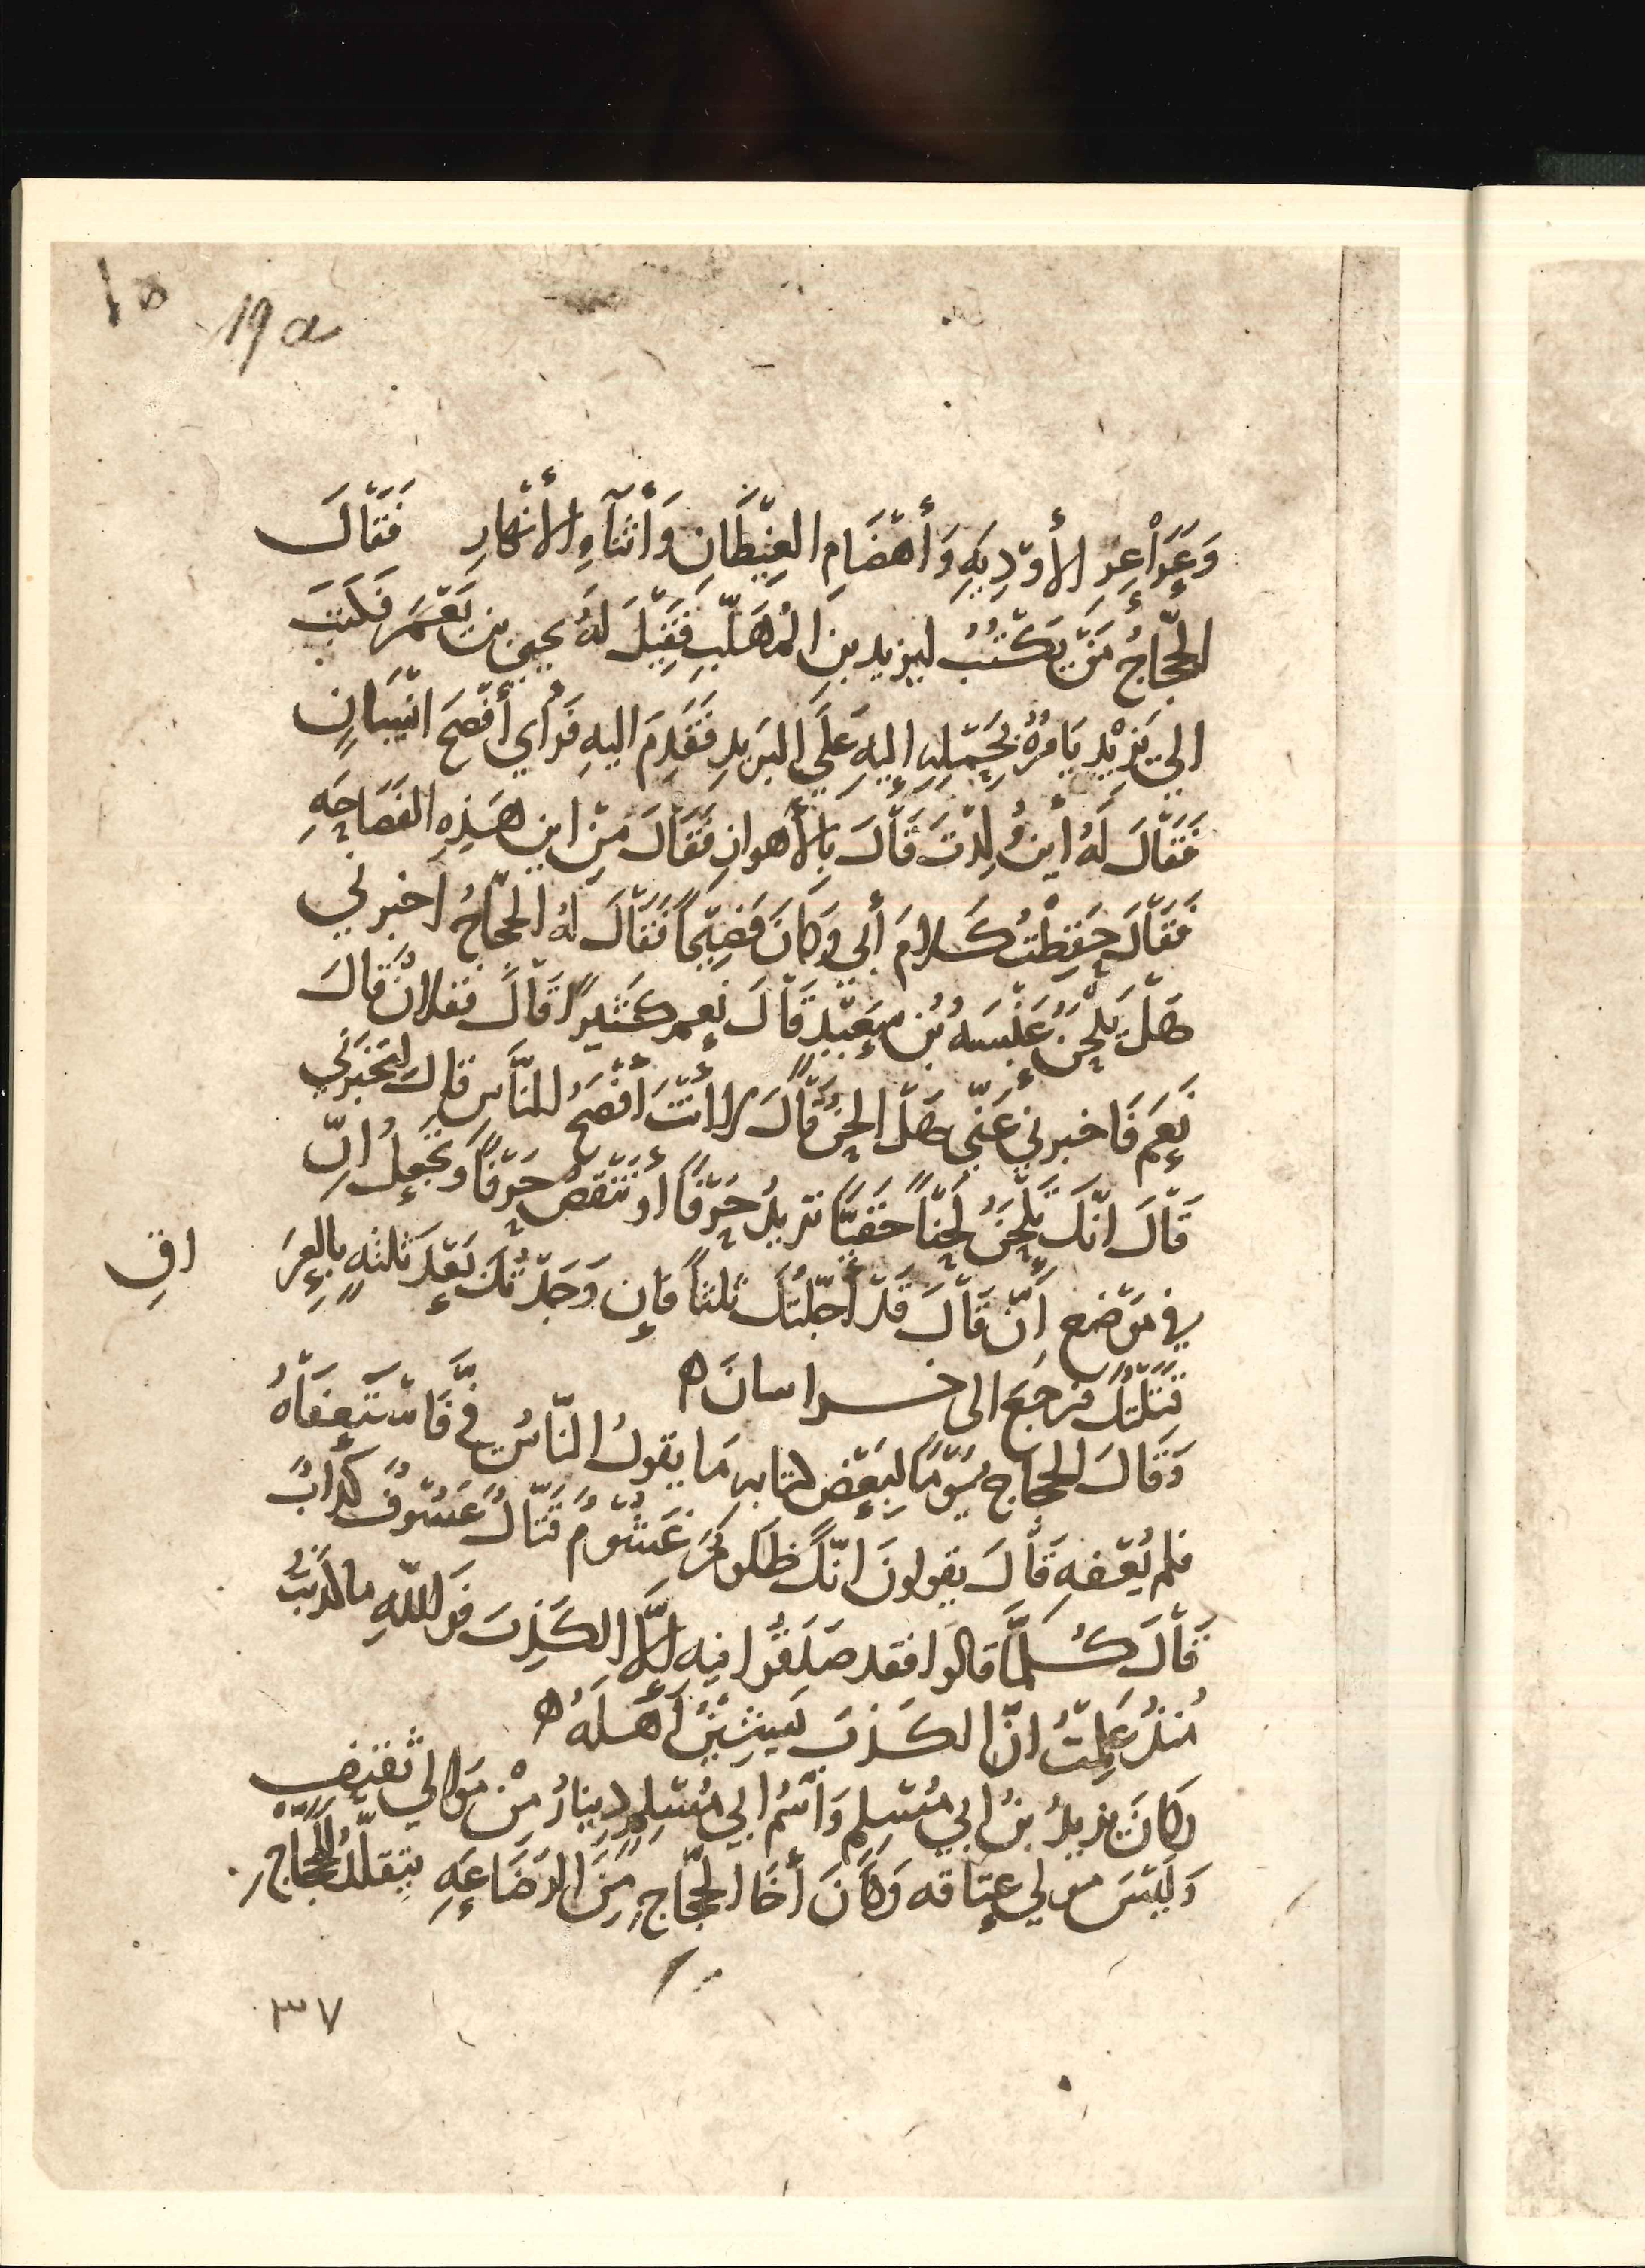 19a
وَعَرَاْعِرِ الأَوْدِيَهِ وَأَهْضَامِ الغِيْطَانِ وَأَثْنَآءِ الأَنْهَارِ فَقَالَ
الحَجّاجُ مَنْ يَكْتُبُ ليزيد بنِ المُهَلَّبِ فَقِيْلَ لَهُ يحيى بن يَعْمَر فَكَتبَ
الي يَزِيْدِ يَامُرُهُ بِحَمْلِهِ إليهِ عَلَي البَرِيدِ فَقَدِمَ اليهِ فَرَأي أَفْصَحَ انْسَانٍ
فَقَاْلَ لَهُ أينَ وُلِدْتَ قَاْلَ بِالأَهوازِ فَقَاْلَ مِنْ اين هَذِهِ الفَصَاحَهِ
فَقَاْلَ حَفِظْتُ كَلامَ أَبي وَكَانَ فَصِيْحًا فَقَاْلَ لَهُ الحَجّاجُ اَخبرني
هَلْ يَلْحَنُ عَنْبَسَهُ بْنُ سَعِيْدٍ قَاْلَ نَعم كَثيرًا قَاْلَ فَفُلانٌ قَالَ
نَعَم فَاخبرني عَنّي هَلْ الحَنُ قَاْلَ لا انْتَ أَفْصَحُ للنَّاسِ قالَ لتُخْبِرَنّي
قَاْلَ انّكَ تَلْحَنُ لَحْنًا خَفَيًّا تزيدُ حَرْفًا أَوْ تَنْقُصُ حَرْفًا وَتَجْعلُ اِنّ
في مَوْضعِ اَنّ قَاْلَ قَدْ أَجّلْتُكَ ثلثًا فَإِن وَجَدْتُكَ بَعْدَ ثلثهٍ بالعِرَ اقِ
قَتَلْتُكَ فَرَجَعَ الى خراسانَ ه
وَقَالَ الحجاج يَوْمًا لبَعْضِ كتابه مَا يقولُ النّاسُ فِيَّ فَاسْتَعفَاْهُ
فلم يُعْفهِ قَاْلَ يقولونَ انّكَ ظَلومٌ غَشُوْمٌ قَتّالٌ عَسُوفٌ كذّابٌ
قَاْلَ كُلّمَا قالوا فقد صَدَقُوا فيه اِلَّا الكَذِبَ فَوَاللّهِ ما كذَبْتُ
مُنذُ عَلِمْتُ انّ الكَذبَ يَشِيْنُ اَهلَهُ ه
وكَانَ يزيدُ بنُ ابي مُسْلِمٍ وَاسْمُ ابي مُسْلِمٍ دِينارٌ مِنْ مَوالي ثَقَيفٍ
وَلَيْسَ مولي عِتاقه وَكَانَ أَخَا الحَجّاجِ مِنَ الرَضَاعَهِ يتقلّدُ للحَجّاجِ
٣٧